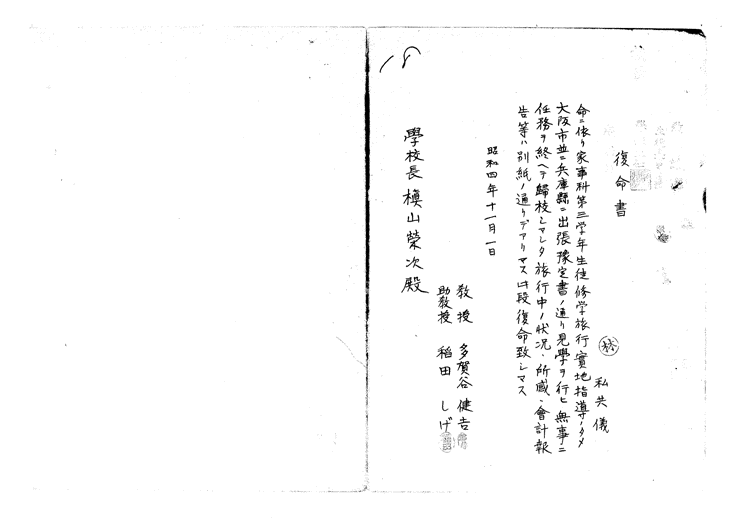 18
復命書
私共儀
命ニ依リ家事科第三学年生徒修学旅行實地指導ノタメ
大阪市並ニ兵庫縣ニ出張豫定書ノ通リ見學ヲ行ヒ無事ニ
任務ヲ終ヘテ歸校シマシタ旅行中ノ状況、所感、會計報
告等ハ別紙ノ通リデアリマス此段復命致シマス
昭和四年十一月一日
教授 多賀谷健吉
助教授 稲田しげ
學校長 槇山榮次殿